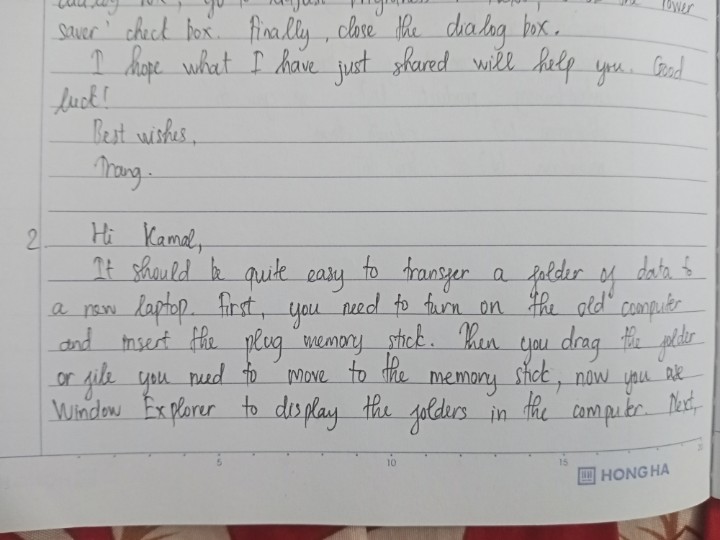 saver' check box. Finally, close the dialog box.
I hope what I have just shared will help you. Good
luck!
Best wishes,
Trang.
2. Hi Kamal,
It should be quite easy to transfer a folder of data to
a new laptop. First, you need to turn on the old computer
and insert the plug memory stick. Then you drag the folder
or file you need to move to the memory stick, now you use
Window Explorer to display the folders in the computer. Next,
5 10 15
HONG HA